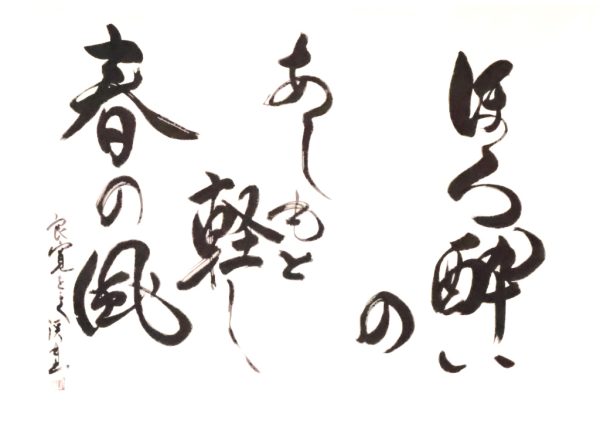 ほろ酔い
の
あしもと
軽し
春の風
良寛